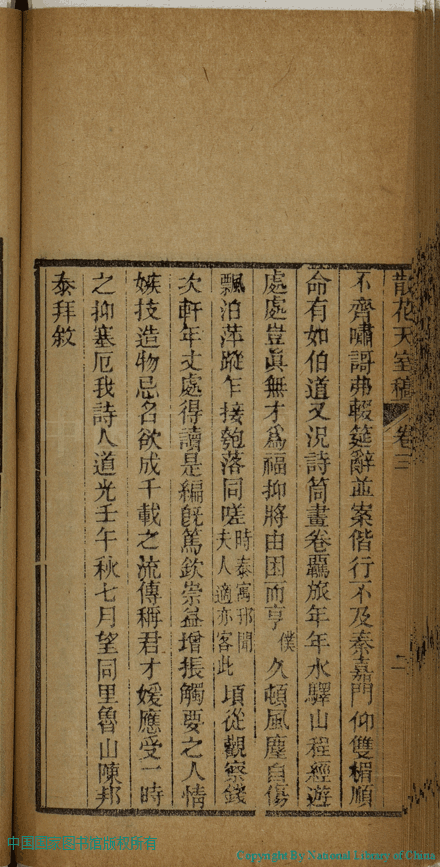 散花天室稿 卷三 二
不齊嘯謌弗輟筵辭並案偕行不及秦嘉門仰雙楣順
命有如伯道又況詩筒畫卷羈旅年年水驛山程經遊
處處豈眞無才爲福抑將由困而亨僕久頓風塵自傷
飄泊萍蹤乍接匏落同嗟時泰寓邗聞夫人適亦客此頃從觀察錢
次軒年丈處得讀是編旣篤欽崇益增振觸要之人情
嫉技造物忌名欲成千載之流傳稱君才媛應受一時
之抑塞厄我詩人道光壬午秋七月望同里魯山陳邦
泰拜敘
中国国家图书馆版权所有
Copyright By National Library of China